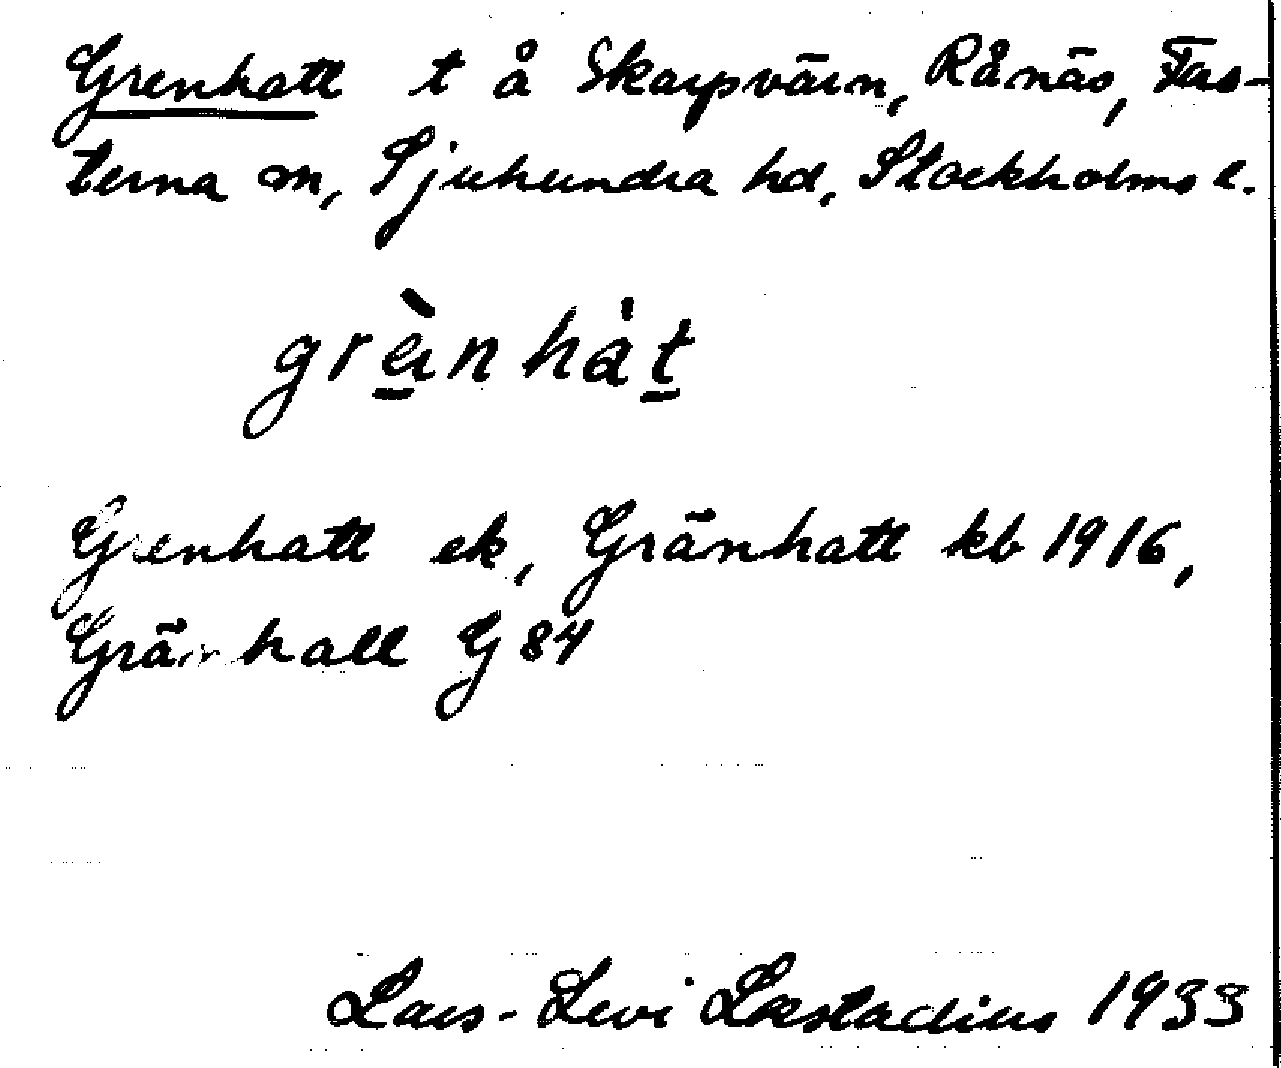 Grenhatt t å Skarpvärn, Rånäs, Fas-
terna sn, Sjuhundra hd, Stockholms l.
grä̀nhȧt
Grenhatt ek, Gränhatt kb 1916,
Gränhall G 84
Lars-Levi Læstadius 1933